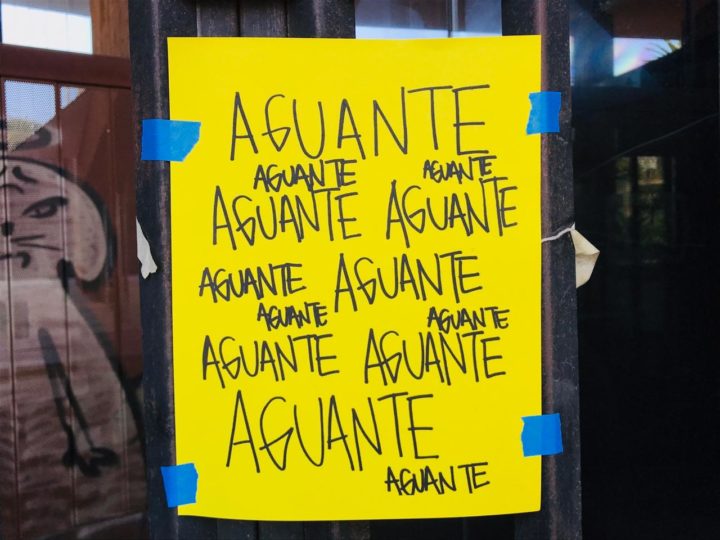 AGUANTE
AGUANTE AGUANTE
AGUANTE AGUANTE
AGUANTE AGUANTE
AGUANTE AGUANTE
AGUANTE AGUANTE
AGUANTE
AGUANTE